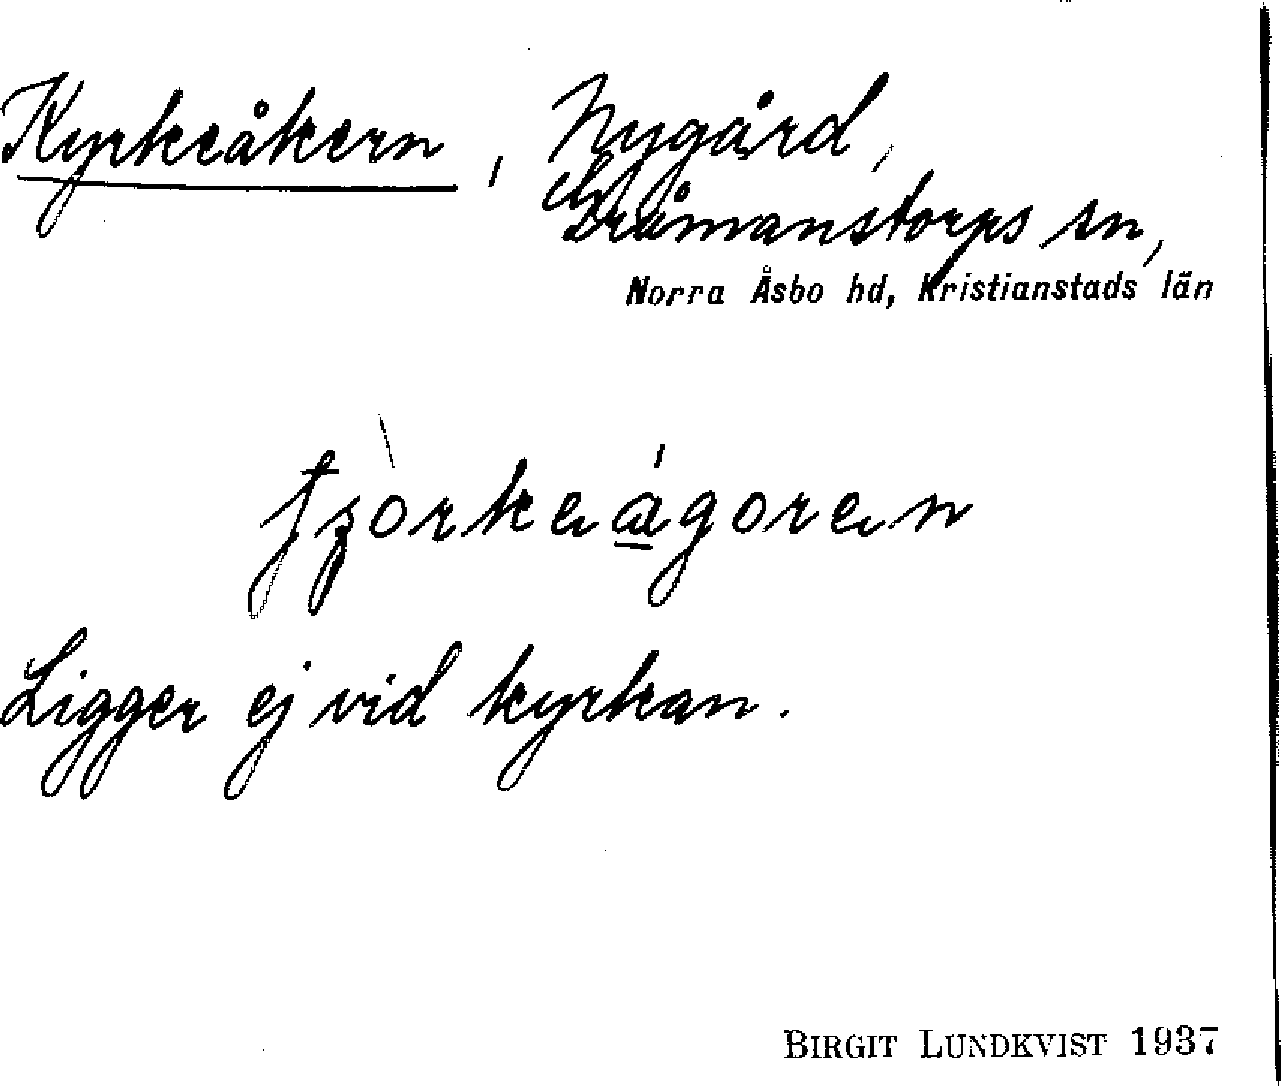 Kyrkeåkern, Nygård,
Gråmanstorps sn,
Norra Åsbo hd, Kristianstads län
Ligger ej vid kyrkan.
BIRGIT LUNDKVIST 1937